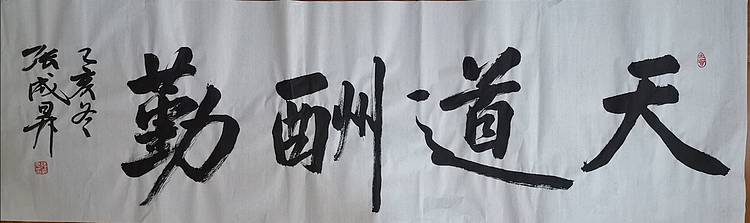 天道酬勤
己亥冬
张成昇